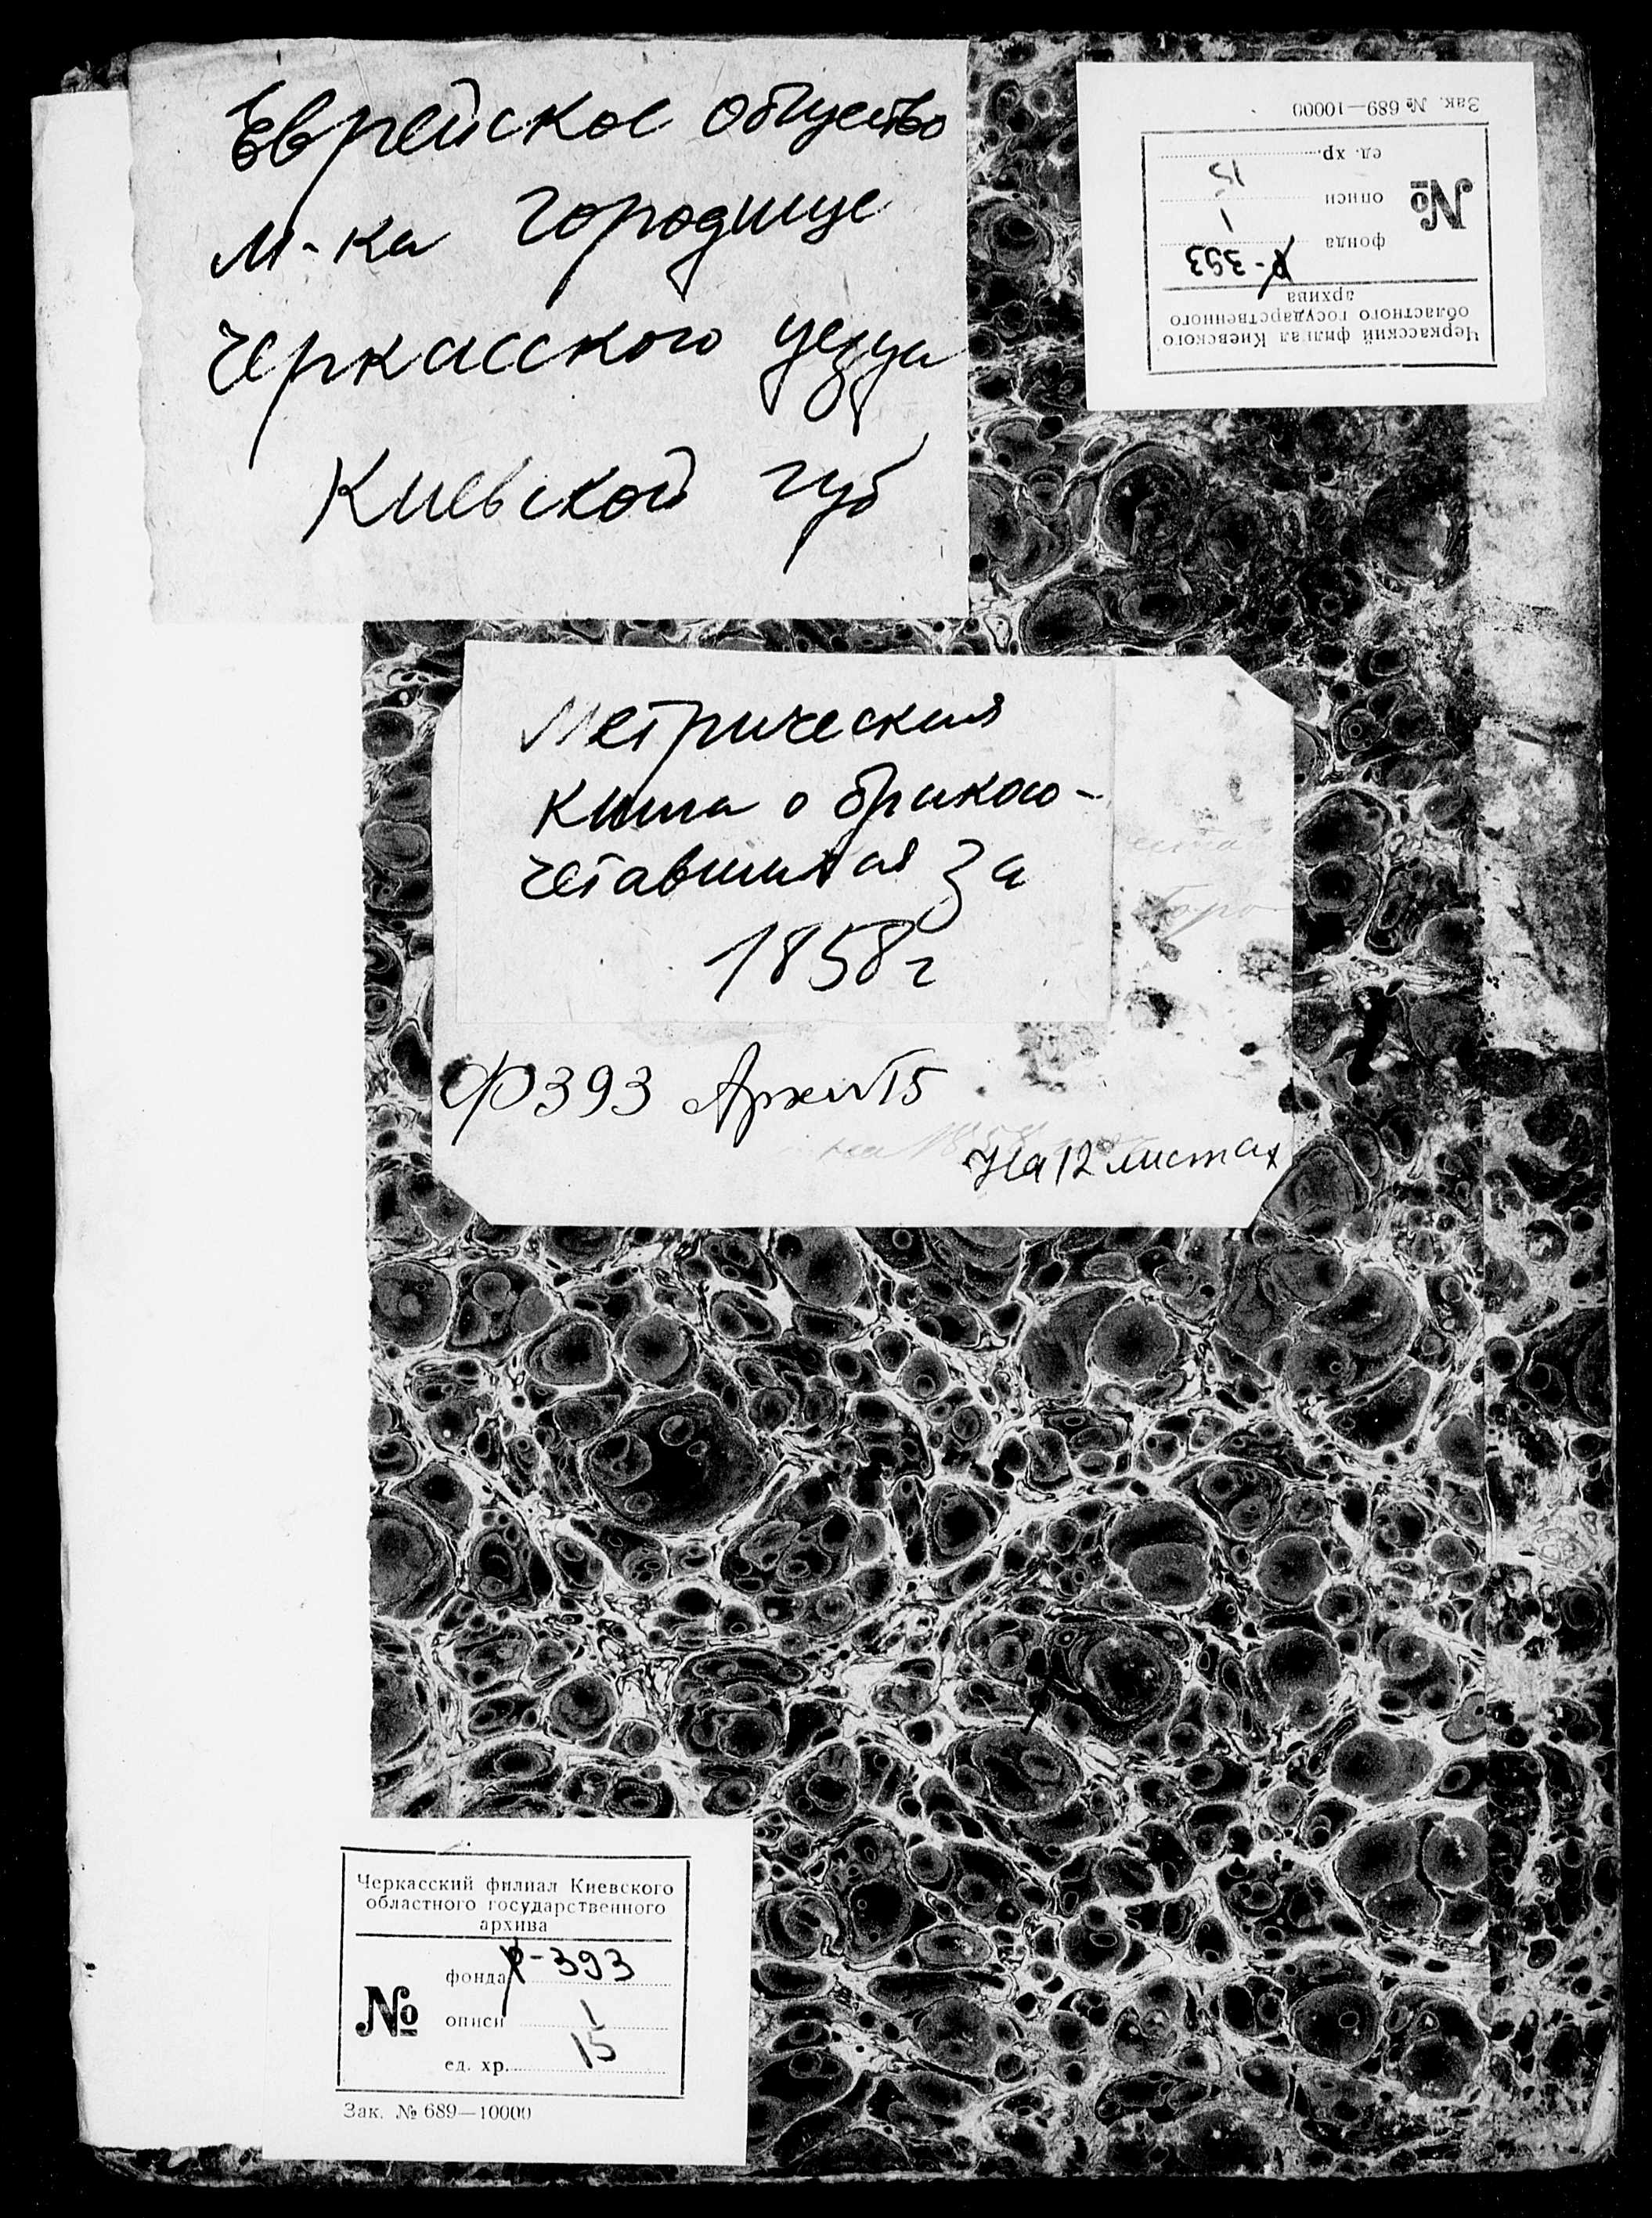 Еврейское общество
м-ка Городище
Черкасского уезда
Киевской губ
Зак. № 689—10000
Черкасский филиал Киевского
областного государственного
архива
№
фонда р-393
описи 1
ед. хр. 15
Метрическая
книга о бракосо-
четавшихся за
1858 г
Ф 393 Арх №15
на 1858
На 12 листах
Черкасский филиал Киевского
областного государственного
архива
№
фонда р-393
описи 1
ед. хр. 15
Зак. № 689—10000